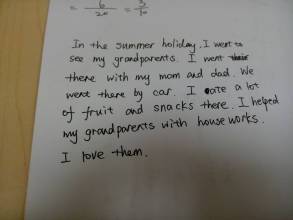 = 6/20 = 3/10
In the summer holiday, I went to
see my grandparents. I went
there with my mom and dad. We
went there by car. I ate a lot
of fruit and snacks there. I helped
my grandparents with houseworks.
I love them.